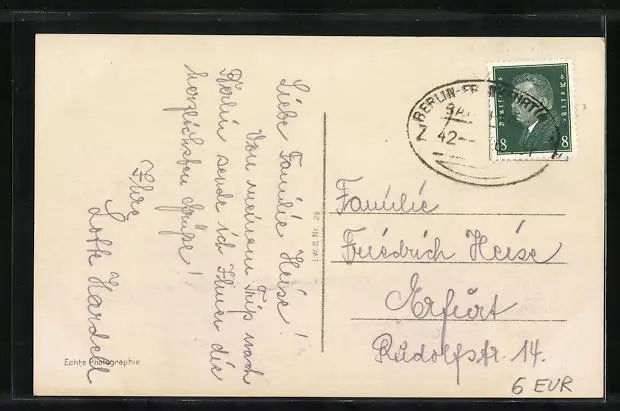 Liebe Familie Heise!
Von meinem Trip nach
Berlin sende ich Ihnen die
herzlichsten Grüße!
Ihre
Lotte Hardell
Echte Photographie
I.W.B. Nr. 29
BERLIN-FRANKFURT
BAHN
Z 42
Deutsches Reich
8 8
Familie
Friedrich Heise
Erfurt
Rudolfstr. 14.
6 EUR